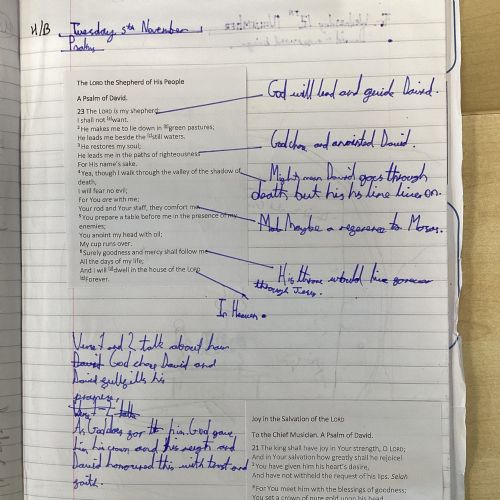 H/B
Tuesday 5th November
The LORD the Shepherd of His People
A Psalm of David.
23 The LORD is my shepherd;
I shall not [a]want.
2 He makes me to lie down in [b]green pastures;
He leads me beside the [c]still waters.
3 He restores my soul;
He leads me in the paths of righteousness
For His name's sake.
4 Yea, though I walk through the valley of the shadow of
death,
I will fear no evil;
For You are with me;
Your rod and Your staff, they comfort me.
5 You prepare a table before me in the presence of my
enemies;
You anoint my head with oil;
My cup runs over.
6 Surely goodness and mercy shall follow me
All the days of my life;
And I will [d]dwell in the house of the LORD
[e]Forever.
God will lead and guide David.
God chose and anointed David.
Might mean David goes through
death, but his his line lives on.
Maybe a reference to Moses.
His throne would live forever
through Jesus.
In Heaven.
Verse 1 and 2 talk about how
David God chose David and
David fulfills his
prayers,
As God does for him, God gave
him his crown and his reign and
David honoured this with trust and
faith.
Joy in the Salvation of the LORD
To the Chief Musician. A Psalm of David.
21 The king shall have joy in Your strength, O LORD;
And in Your salvation how greatly shall he rejoice!
2 You have given him his heart's desire,
And have not withheld the request of his lips. Selah
3 For You meet him with the blessings of goodness;
You set a crown of pure gold upon his head.